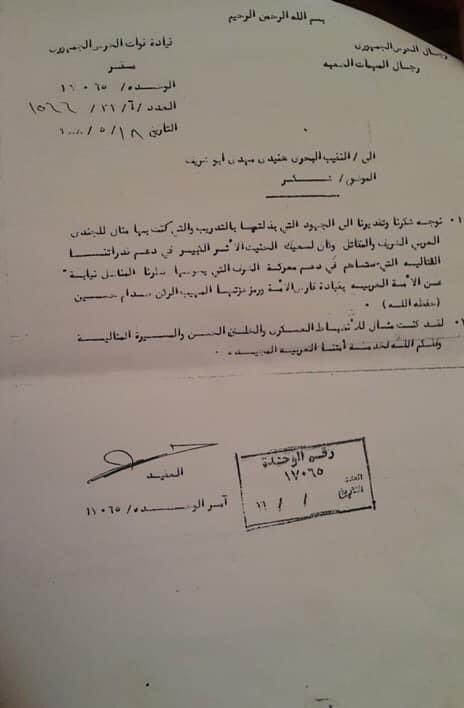 بسم الله الرحمن الرحيم
رجال الحرس الجمهوري
رجال المهمات الصعبة
قيادة قوات الحرس الجمهوري
مقر
الوحده/ ١٧٠٦٥
العدد/ ٢١/٦/ ١٥٦٦
التاريخ ١٨/ ٥/
الى / النقيب البحري مهدي ابو شريف
الموضوع / شكر
١٠ نوجه شكرنا وتقديرنا الى الجهود التي بذلتها بالتدريب والتي كنت بها مثال للجندي
العربي الشريف والمقاتل وكان لسعيك الحثيث الأثر الكبير في دعم قدراتنا
القتاليه التي ستساهم في دعم معركة الشرف التي يخوضها المناضل نيابة
عن الأمة العربيه بقيادة فارس الامة ورمز عزتها المهيب الركن صدام حسين
(حفظه الله) ٠
لقد كنت مثال للأنضباط العسكري والخلق الحسن والمسيرة المثالية
وفقكم الله لخدمة أمتنا العربيه المجيده ٠
العقيد
آمر الوحده/ ١٧٠٦٥
رقم الوحدة
١٧٠٦٥
العدد
التاريخ / /